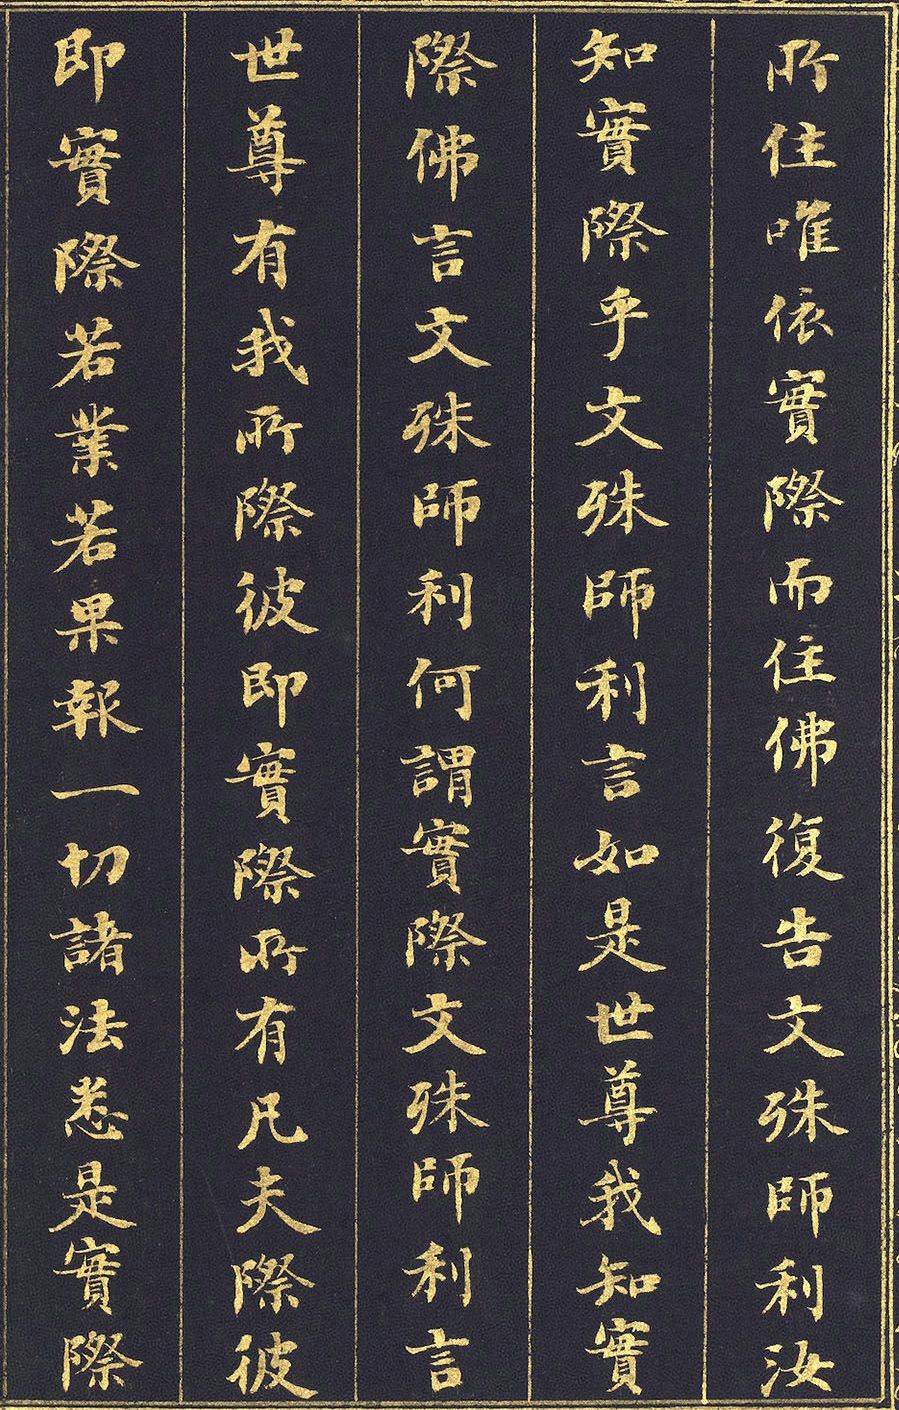 所住唯依實際而住佛復告文殊師利汝
知實際乎文殊師利言如是世尊我知實
際佛言文殊師利何謂實際文殊師利言
世尊有我所際彼即實際所有凡夫際彼
即實際若業若果報一切諸法悉是實際